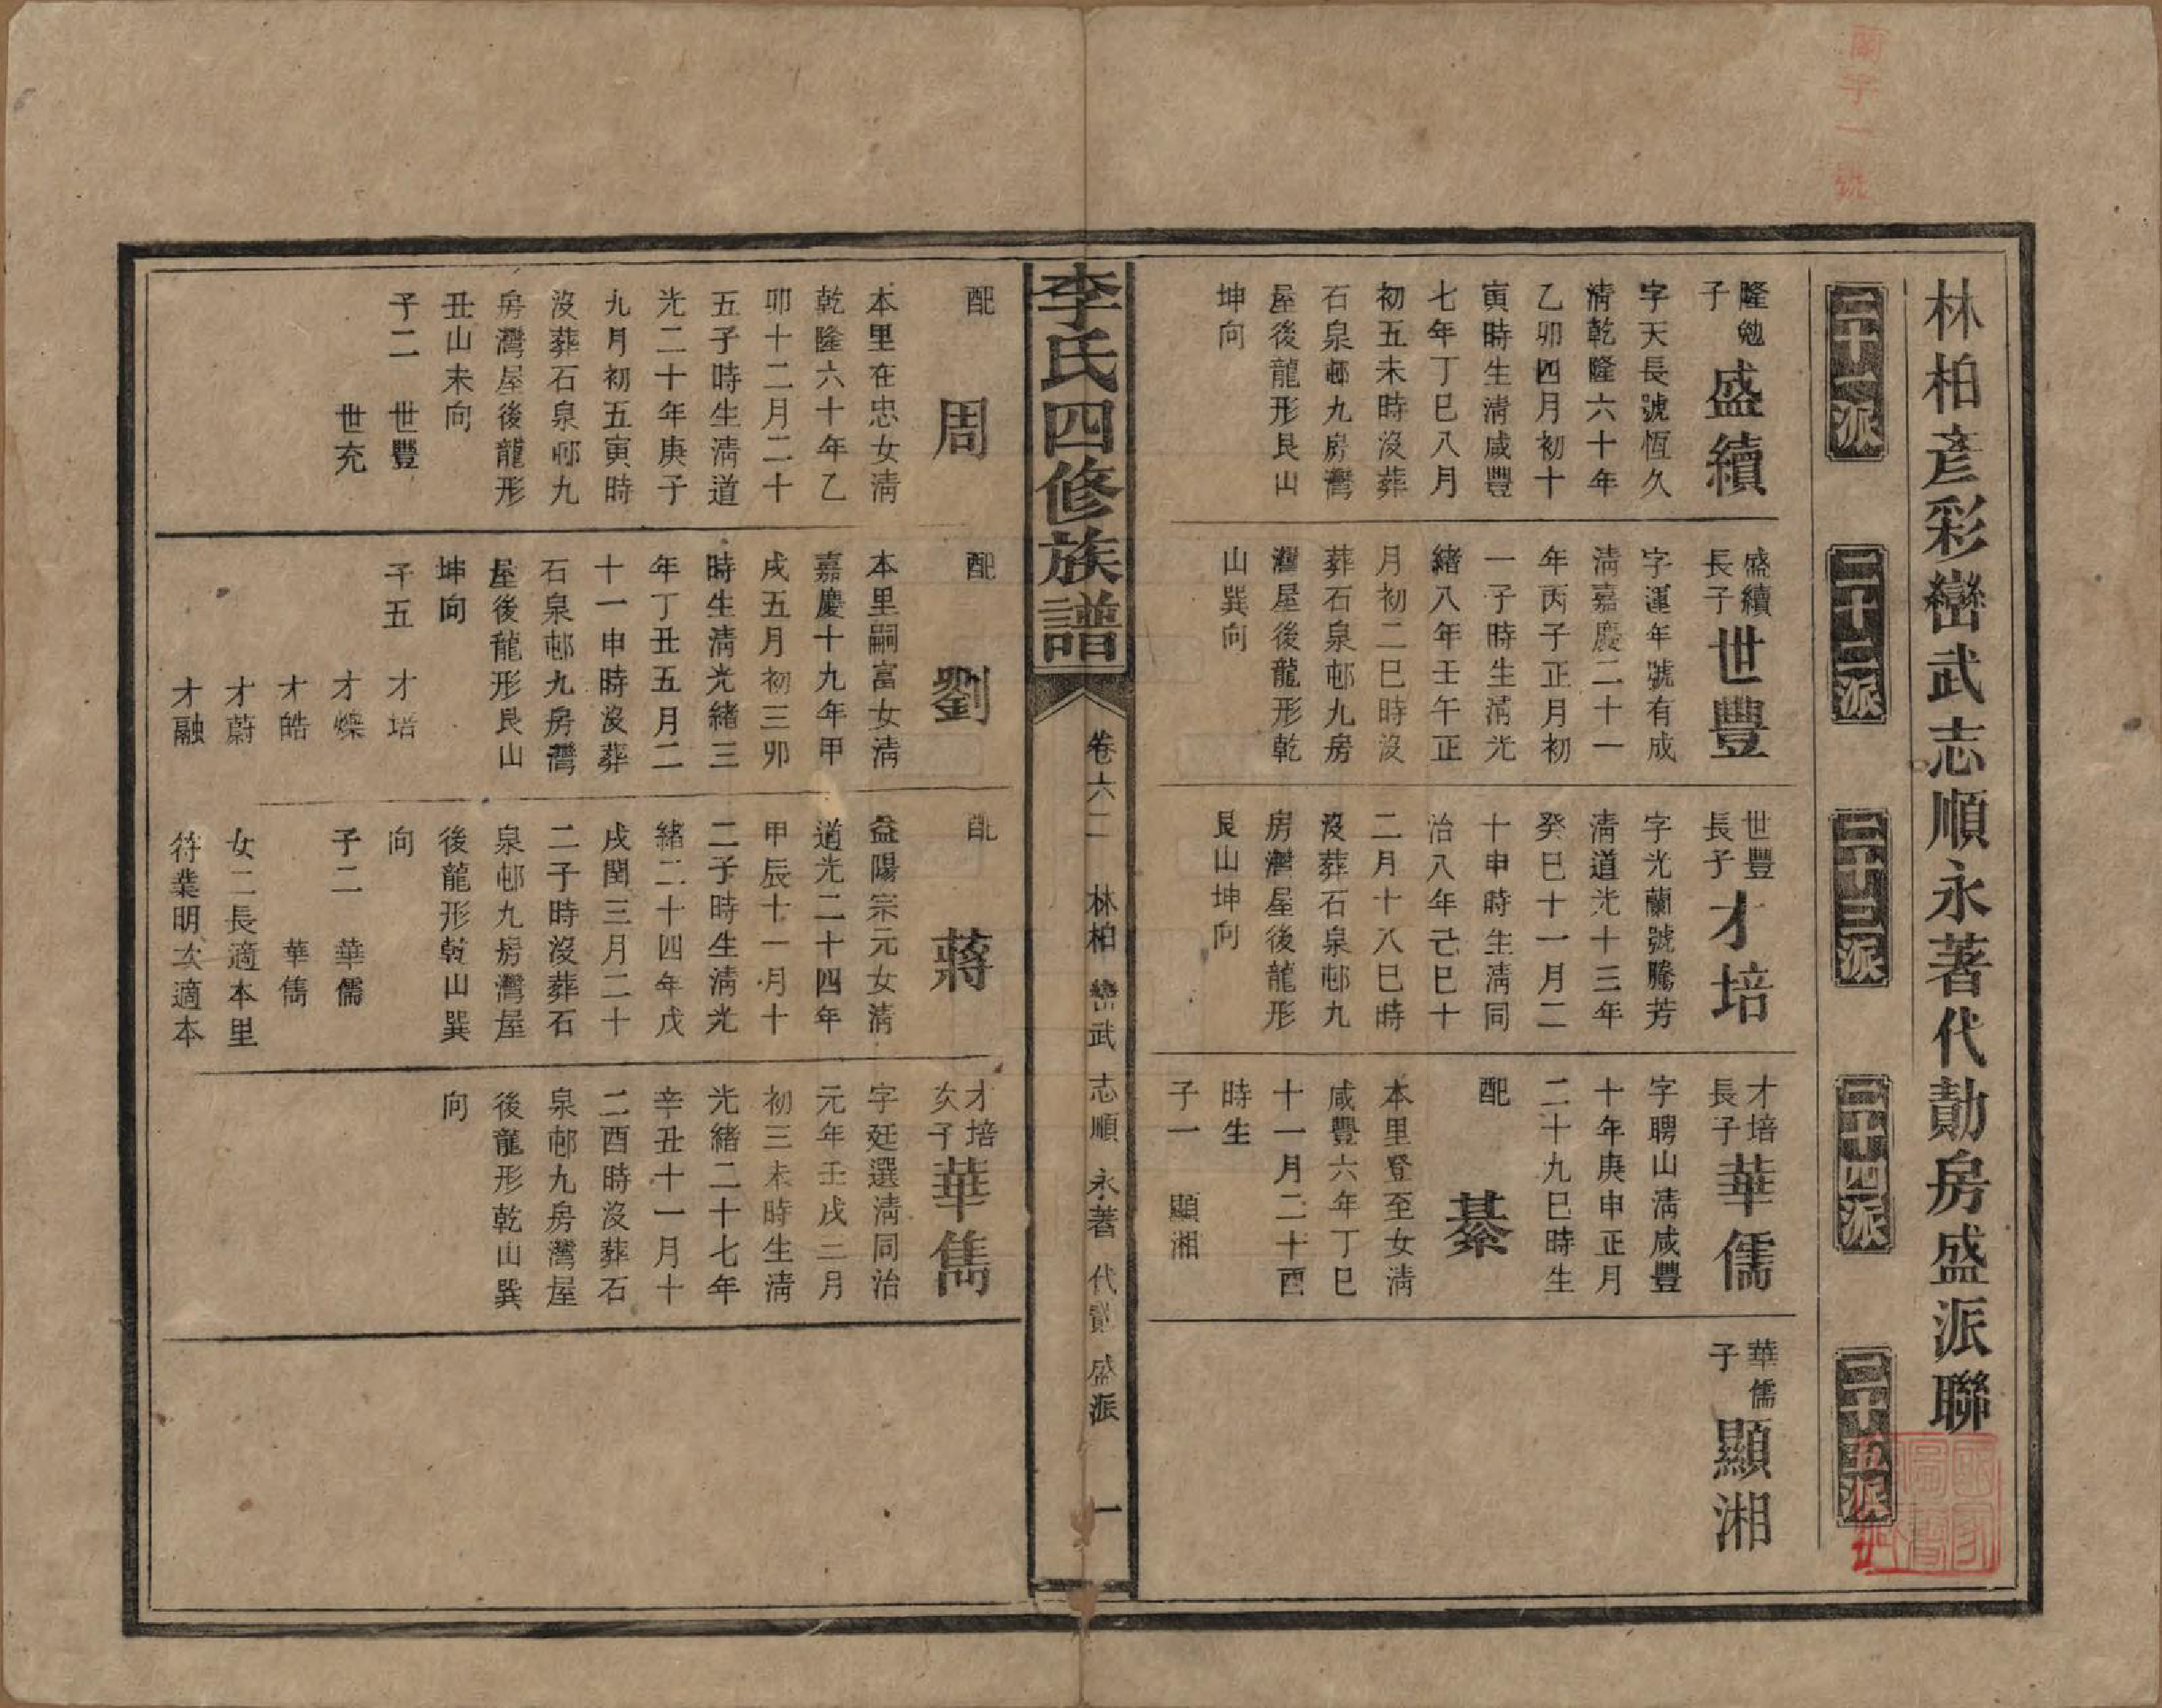 蘭字一號
林柏彥彩巒武志順永著代勣房盛派聯
二十一派
二十二派
二十三派
二十四派
二十五派
隆勉
子
盛續
字天長號恆久
清乾隆六十年
乙卯四月初十
寅時生清咸豐
七年丁巳八月
初五未時沒葬
石泉邨九房灣
屋後龍形艮山
坤向
盛續
長子
世豐
字運年號有成
清嘉慶二十一
年丙子正月初
一子時生清光
緒八年壬午正
月初二巳時沒
葬石泉邨九房
灣屋後龍形乾
山巽向
世豐
長子
才培
字光蘭號騰芳
清道光十三年
癸巳十一月二
十申時生清同
治八年己巳十
二月十八巳時
沒葬石泉邨九
房灣屋後龍形
艮山坤向
才培
長子
華儒
字聘山清咸豐
十年庚申正月
二十九巳時生
配
綦
本里登至女清
咸豐六年丁巳
十一月二十酉
時生
子一 顯湘
華儒
子
顯湘
李氏四修族譜
卷六二 林柏 巒武 志順 永著 代勣 盛派 一
配
周
本里在忠女清
乾隆六十年乙
卯十二月二十
五子時生清道
光二十年庚子
九月初五寅時
沒葬石泉邨九
房灣屋後龍形
丑山未向
子二 世豐
世充
配
劉
本里嗣富女清
嘉慶十九年甲
戌五月初三卯
時生清光緒三
年丁丑五月二
十一申時沒葬
石泉邨九房灣
屋後龍形艮山
坤向
子五 才培
才燦
才皓
才蔚
才融
配
蔣
益陽宗元女清
道光二十四年
甲辰十一月十
二子時生清光
緒二十四年戊
戌閏三月二十
二子時沒葬石
泉邨九房灣屋
後龍形乾山巽
向
子二 華儒
華儁
女二長適本里
符業明次適本
才培
次子
華儁
字廷選清同治
元年壬戌二月
初三未時生清
光緒二十七年
辛丑十一月十
二酉時沒葬石
泉邨九房灣屋
後龍形乾山巽
向